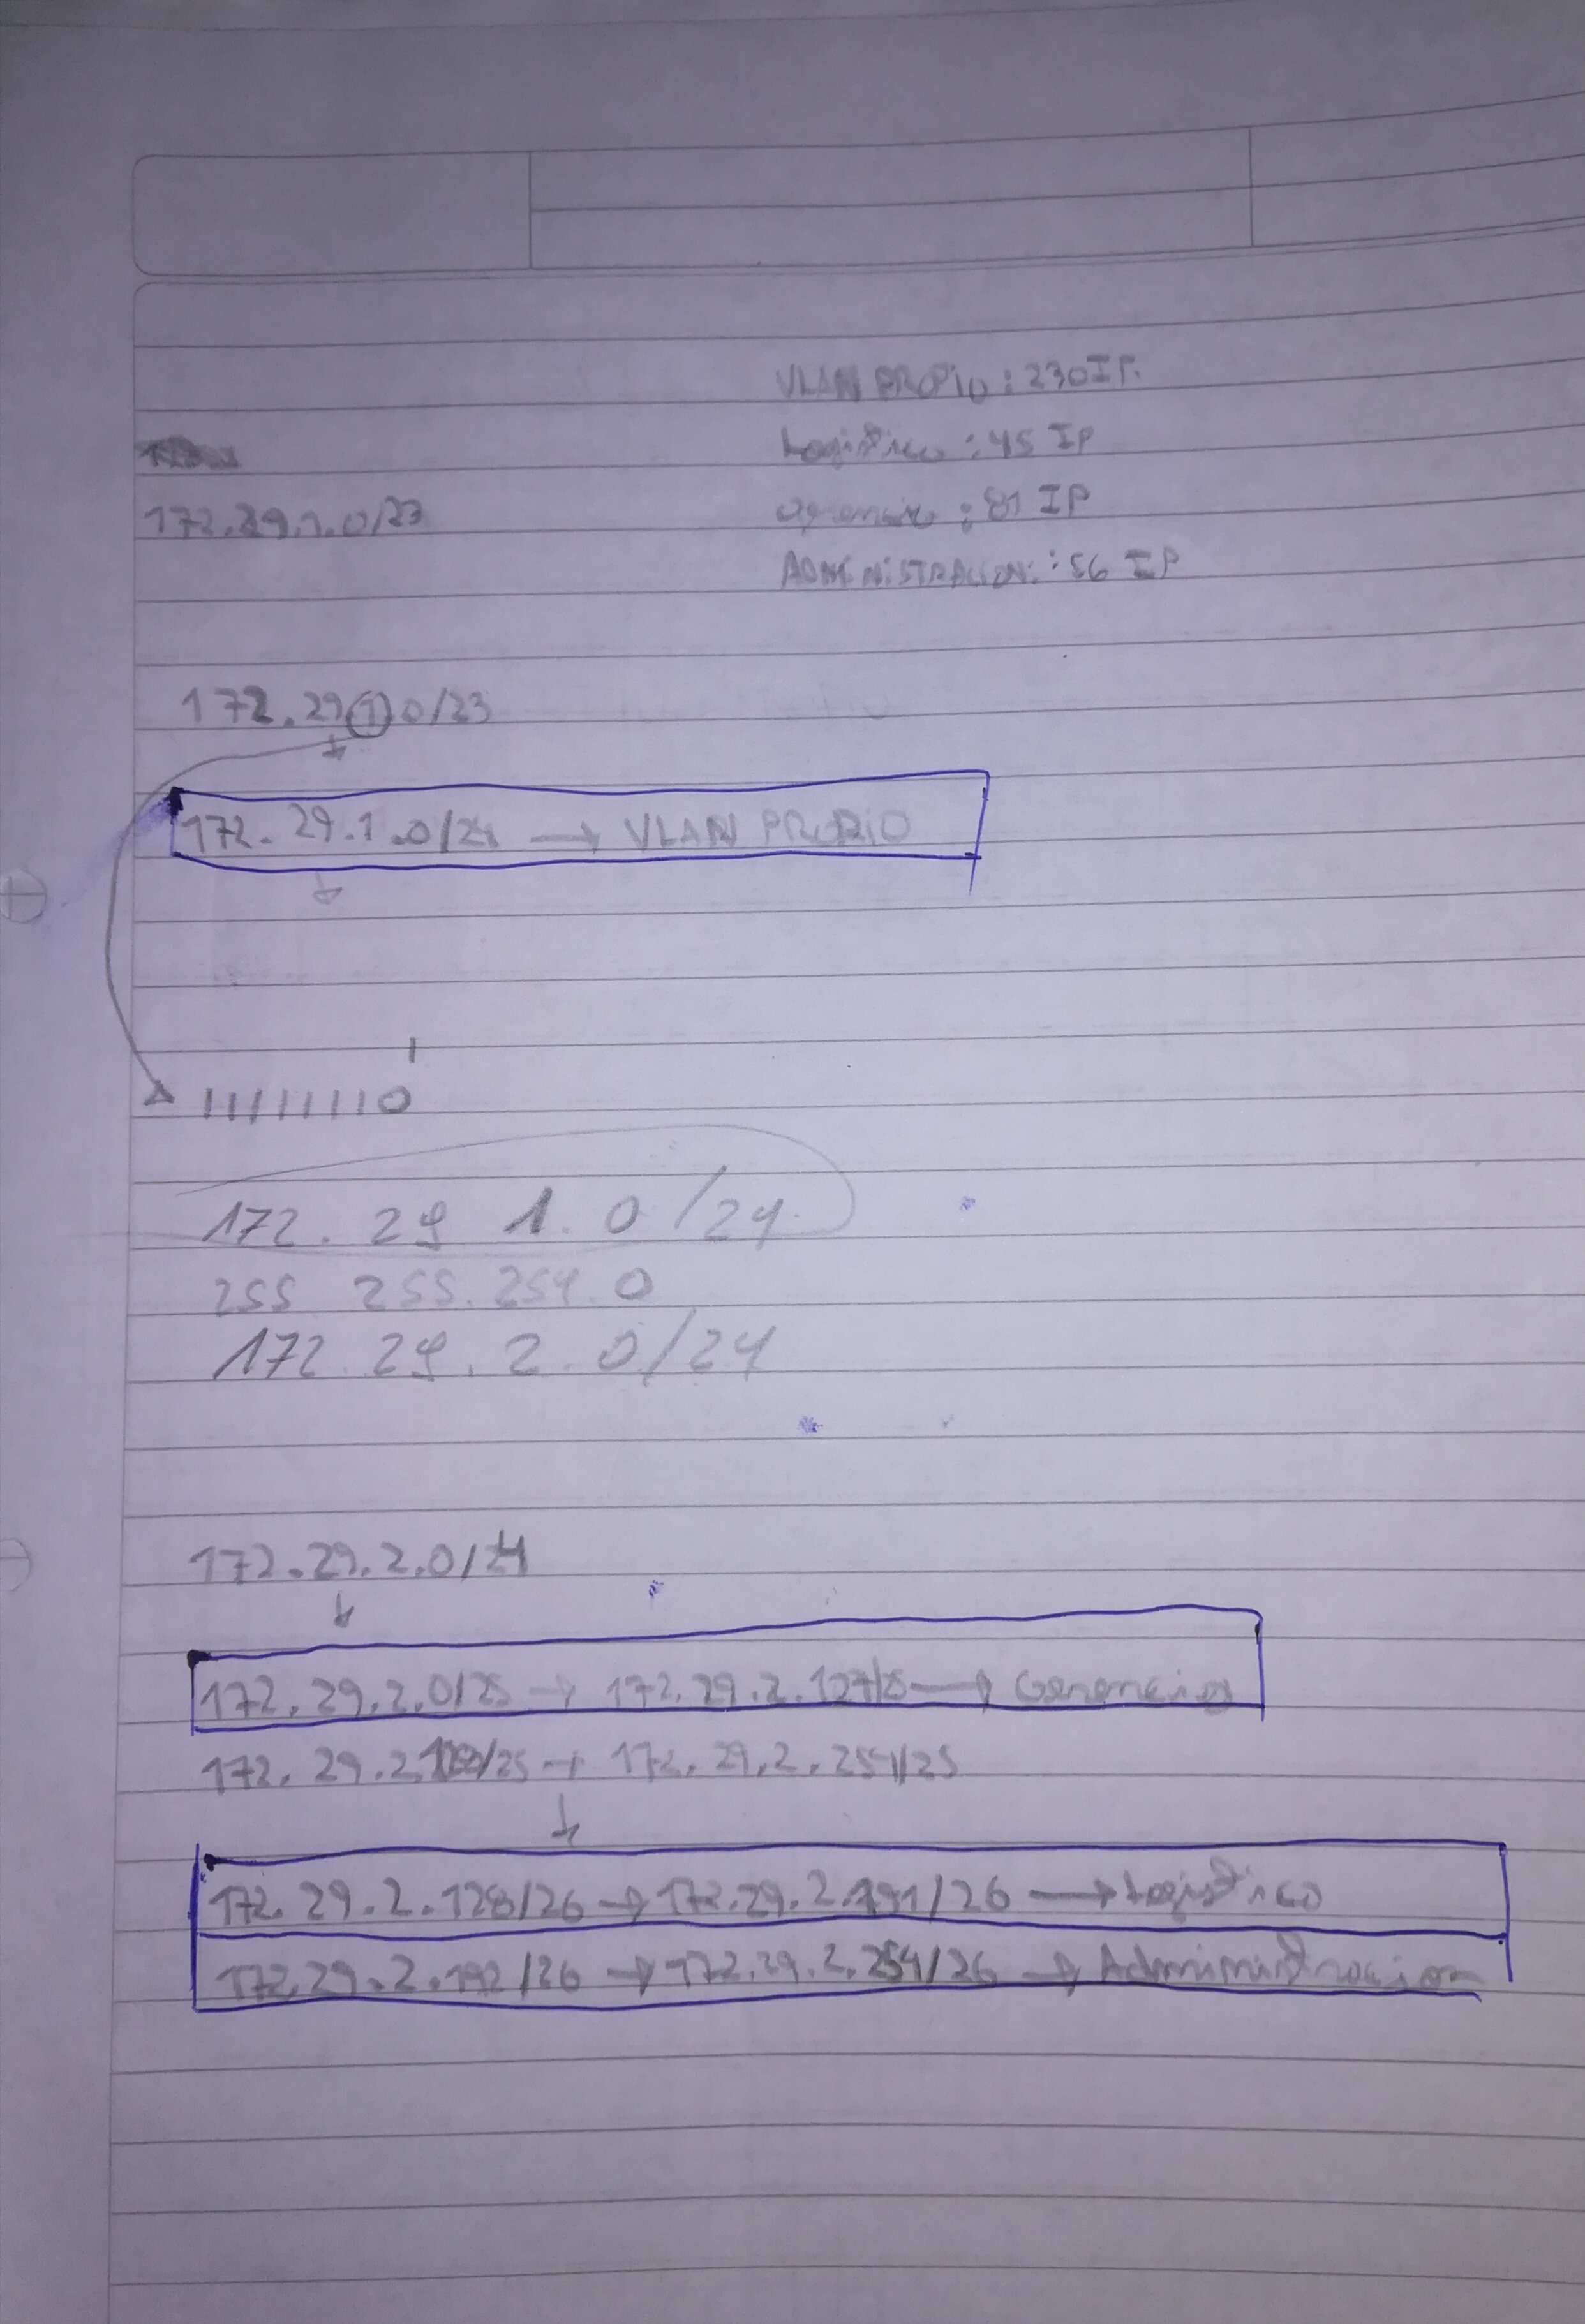 VLAN PROPIO : 230 IP.
Logistico : 45 IP
172.29.1.0/23
: 81 IP
ADMINISTRACION: : 56 IP
172.29.1.0/23
172.29.1.0/24 → VLAN PROPIO
1
111111110
172. 29 1. 0 /24
255 255. 254. 0
172. 29. 2. 0/24
172.29.2.0/24
172.29.2.0/25 → 172.29.2.127/25 → Gerencia
172.29.2.128/25 → 172.29.2.254/25
172.29.2.128/26 → 172.29.2.191/26 → Logistico
172.29.2.192/26 → 172.29.2.254/26 → Administracion